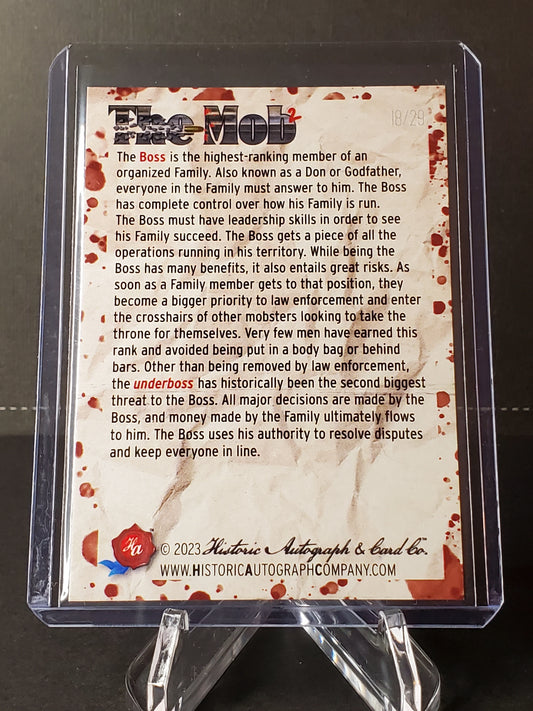 The Mob 2
18/29
The Boss is the highest-ranking member of an
organized Family. Also known as a Don or Godfather,
everyone in the Family must answer to him. The Boss
has complete control over how his Family is run.
The Boss must have leadership skills in order to see
his Family succeed. The Boss gets a piece of all the
operations running in his territory. While being the
Boss has many benefits, it also entails great risks. As
soon as a Family member gets to that position, they
become a bigger priority to law enforcement and enter
the crosshairs of other mobsters looking to take the
throne for themselves. Very few men have earned this
rank and avoided being put in a body bag or behind
bars. Other than being removed by law enforcement,
the underboss has historically been the second biggest
threat to the Boss. All major decisions are made by the
Boss, and money made by the Family ultimately flows
to him. The Boss uses his authority to resolve disputes
and keep everyone in line.
Ha © 2023 Historic Autograph & Card Co.™
www.HistoricAutographCompany.com